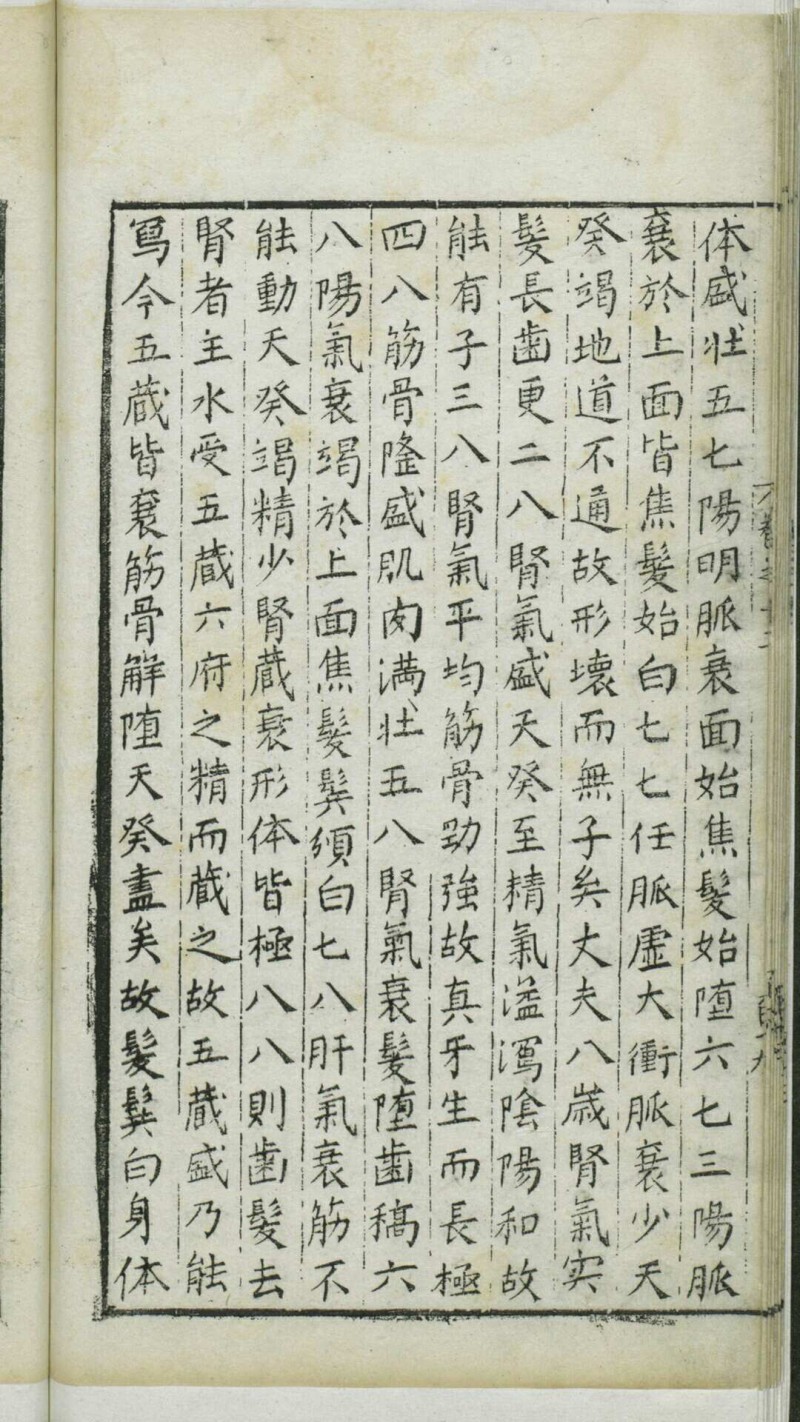 体盛壮五七陽明脈衰面始焦髮始堕六七三陽脈
衰於上面皆焦髮始白七七任脈虛大衝脈衰少天
癸竭地道不通故形壊而無子矣丈夫八歳腎氣实
髮長歯更二八腎氣盛天癸至精氣溢瀉陰陽和故
能有子三八腎氣平均筋骨劲強故真牙生而長極
四八筋骨隆盛肌肉満壮五八腎氣衰髮堕歯稿六
八陽氣衰竭於上面焦髮鬂須白七八肝氣衰筋不
能動天癸竭精少腎蔵衰形体皆極八八則歯髮去
腎者主水受五蔵六府之精而蔵之故五蔵盛乃能
冩今五蔵皆衰筋骨解堕天癸盡矣故髮鬂白身体